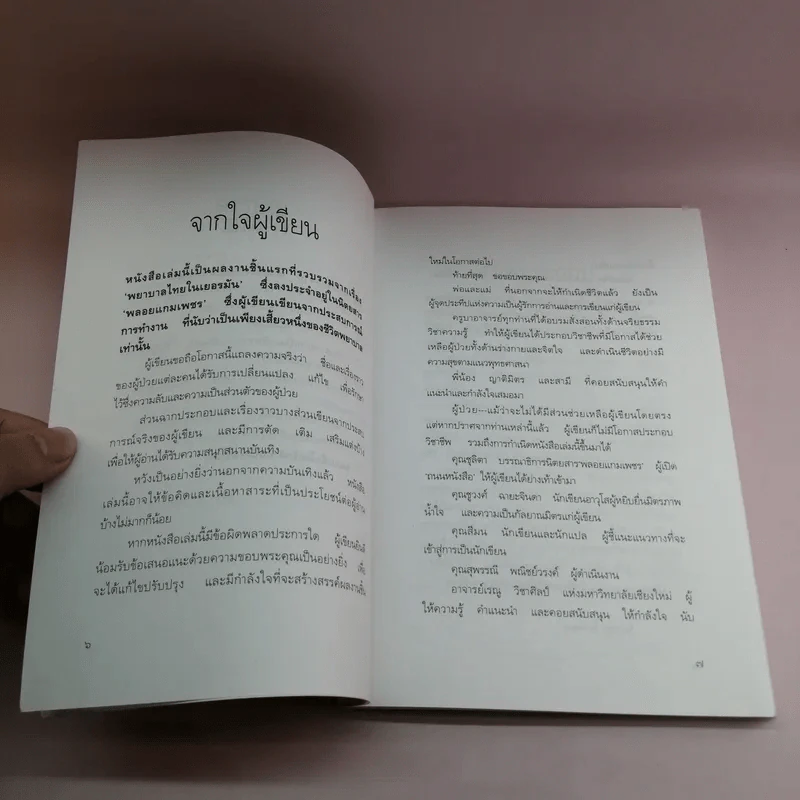 จากใจผู้เขียน
หนังสือเล่มนี้เป็นผลงานชิ้นแรกที่รวบรวมจากเรื่อง
'พยาบาลไทยในเยอรมัน' ซึ่งลงประจำอยู่ในนิตยสาร
'พลอยแกมเพชร' ซึ่งผู้เขียนเขียนจากประสบการณ์
การทำงาน ที่นับว่าเป็นเพียงเสี้ยวหนึ่งของชีวิตพยาบาล
เท่านั้น
ผู้เขียนขอถือโอกาสนี้แถลงความจริงว่า ชื่อและเรื่องราว
ของผู้ป่วยแต่ละคนได้รับการเปลี่ยนแปลง แก้ไข เพื่อรักษา
ไว้ซึ่งความลับและความเป็นส่วนตัวของผู้ป่วย
ส่วนฉากประกอบและเรื่องราวบางส่วนเขียนจากประสบ
การณ์จริงของผู้เขียน และมีการตัด เติม เสริมแต่งบ้าง
เพื่อให้ผู้อ่านได้รับความสนุกสนานบันเทิง
หวังเป็นอย่างยิ่งว่านอกจากความบันเทิงแล้ว หนังสือ
เล่มนี้อาจให้ข้อคิดและเนื้อหาสาระที่เป็นประโยชน์ต่อผู้อ่าน
บ้างไม่มากก็น้อย
หากหนังสือเล่มนี้มีข้อผิดพลาดประการใด ผู้เขียนยินดี
น้อมรับข้อเสนอแนะด้วยความขอบพระคุณเป็นอย่างยิ่ง เพื่อ
จะได้แก้ไขปรับปรุง และมีกำลังใจที่จะสร้างสรรค์ผลงานชิ้น
๖
ใหม่ในโอกาสต่อไป
ท้ายที่สุด ขอขอบพระคุณ
พ่อและแม่ ที่นอกจากจะให้กำเนิดชีวิตแล้ว ยังเป็น
ผู้จุดประทีปแห่งความเป็นผู้รักการอ่านและการเขียนแก่ผู้เขียน
ครูบาอาจารย์ทุกท่านที่ได้อบรมสั่งสอนทั้งด้านจริยธรรม
วิชาความรู้ ทำให้ผู้เขียนได้ประกอบวิชาชีพที่มีโอกาสได้ช่วย
เหลือผู้ป่วยทั้งด้านร่างกายและจิตใจ และดำเนินชีวิตอย่างมี
ความสุขตามแนวพุทธศาสนา
พี่น้อง ญาติมิตร และสามี ที่คอยสนับสนุนให้คำ
แนะนำและกำลังใจเสมอมา
ผู้ป่วย---แม้ว่าจะไม่ได้มีส่วนช่วยเหลือผู้เขียนโดยตรง
แต่หากปราศจากท่านเหล่านี้แล้ว ผู้เขียนก็ไม่มีโอกาสประกอบ
วิชาชีพ รวมถึงการกำเนิดหนังสือเล่มนี้ขึ้นมาได้
คุณชุลิตา บรรณาธิการนิตยสารพลอยแกมเพชร ผู้เปิด
'ถนนหนังสือ' ให้ผู้เขียนได้ย่างเท้าเข้ามา
คุณชูวงศ์ ฉายะจินดา นักเขียนอาวุโสผู้หยิบยื่นมิตรภาพ
น้ำใจ และความเป็นกัลยาณมิตรแก่ผู้เขียน
คุณสีมน นักเขียนและนักแปล ผู้ชี้แนะแนวทางที่จะ
เข้าสู่การเป็นนักเขียน
คุณสุพรรณี พณิชย์วรงค์ ผู้ดำเนินงาน
อาจารย์เรณู วิชาศิลป์ แห่งมหาวิทยาลัยเชียงใหม่ ผู้
ให้ความรู้ คำแนะนำ และคอยสนับสนุน ให้กำลังใจ นับ
๗